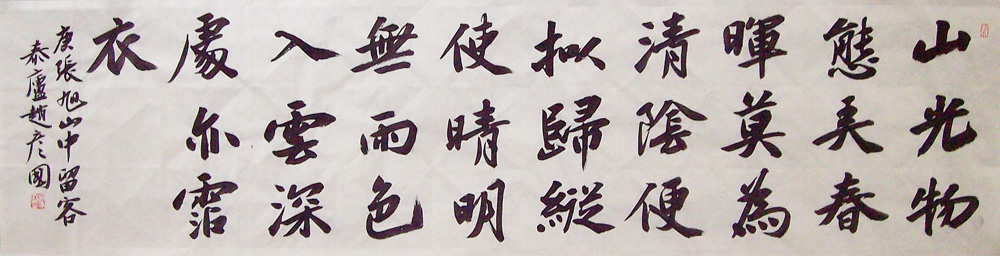 山光物
態弄春
暉莫為
清陰便
拟歸縱
使晴明
無雨色
入雲深
處亦霑
衣
唐張旭山中留客
泰廬趙彥國